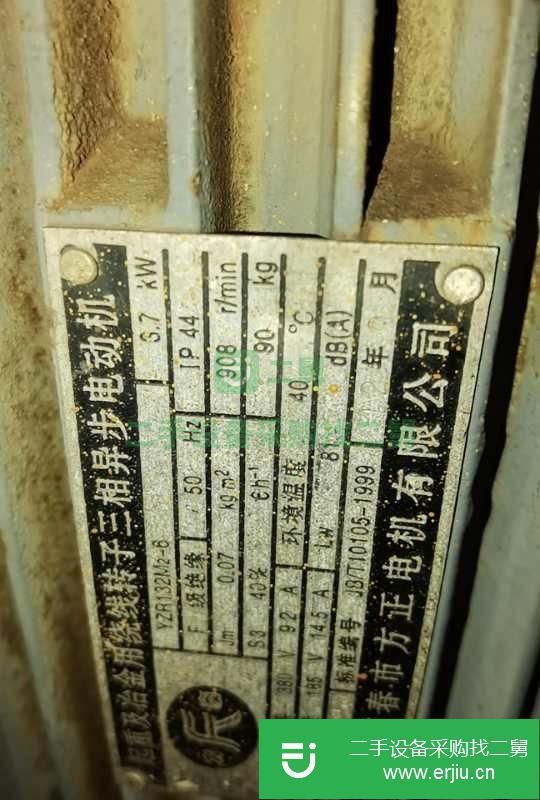 起重及冶金用绕线转子三相异步电动机
YZR132M2-6 3.7 kW
F 级绝缘 50 Hz IP 44
Jm 0.07 kg m² 908 r/min
S3 40% 6h⁻¹ 90 kg
380 V 9.2 A 环境温度 40 ℃
185 V 14.5 A Lw 8 dB(A)
标准编号 JB/T10105-1999 年 月
春市方正电机有限公司
二舅
二手设备采购找二舅
二手设备采购找二舅
www.erjiu.cn